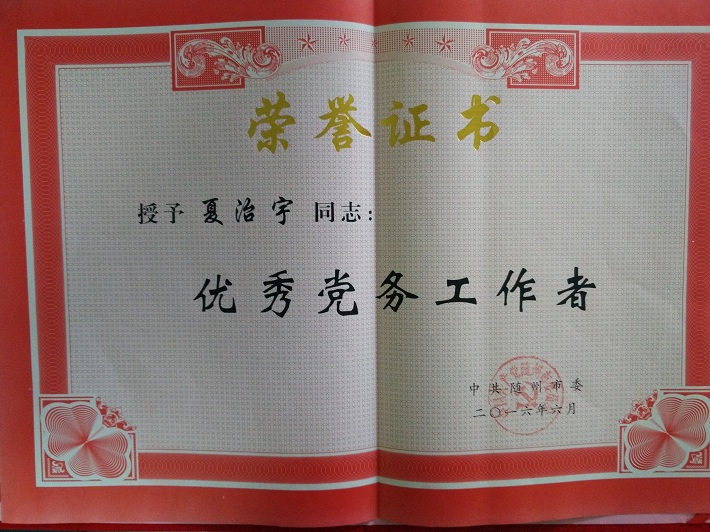 荣誉证书
授予 夏治宇 同志：
优秀党务工作者
中共随州市委
二〇一六年六月